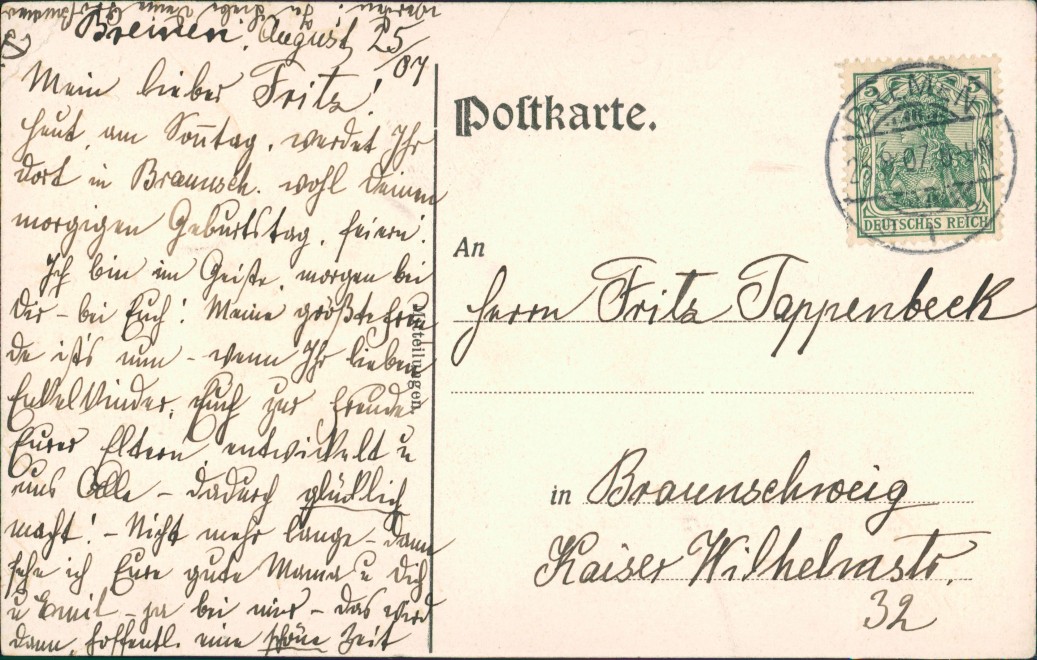 Bremen, August 25/07
Mein lieber Fritz!
Heut, am Soñtag, werdet Ihr
dort in Braunsch. wohl Deinen
morgigen Geburtstag, feiern!
Ich bin im Geiste, morgen bei
Dir – bei Euch! Meine größte Freu
de ist's nun – wenn Ihr lieben
Enkelkinder, Euch zur Freude
Eurer Eltern entwickelt u
uns Alle – dadurch glücklich
macht! – Nicht mehr lange – dann
sehe ich Eure gute Mama u Dich
u Emil – ja bei mir – das wird
dann, hoffentl. eine schöne Zeit
werden! In Liebe Deine Großmama
Mitteilungen.
Postkarte.
BREMEN
DEUTSCHES REICH
5 5
An
Herrn Fritz Tappenbeck
in Braunschweig
Kaiser Wilhelmstr.
32